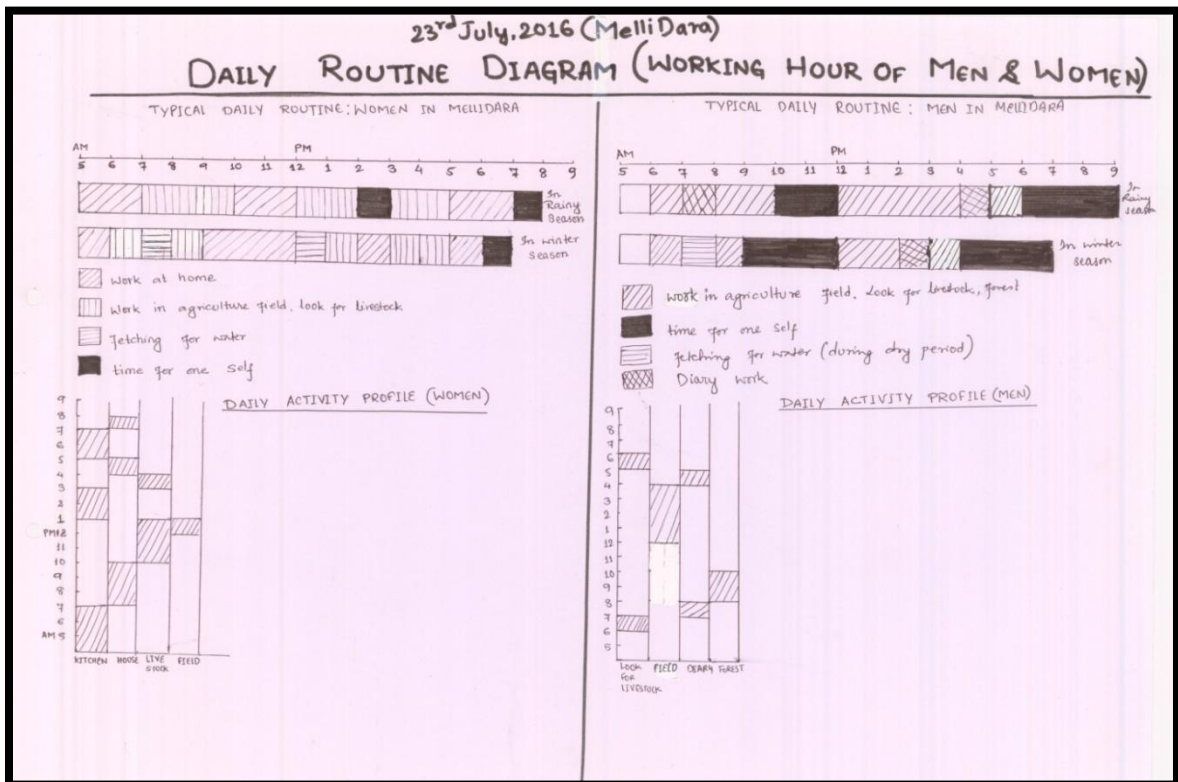 23rd July, 2016 (Melli Dara)
DAILY ROUTINE DIAGRAM (WORKING HOUR OF MEN & WOMEN)
TYPICAL DAILY ROUTINE; WOMEN IN MELLIDARA
AM PM
5 6 7 8 9 10 11 12 1 2 3 4 5 6 7 8 9
In Rainy
Season
In winter
season
work at home
Work in agriculture field, look for livestock
fetching for water
time for one self
DAILY ACTIVITY PROFILE (WOMEN)
9
8
7
6
5
4
3
2
1
PM12
11
10
9
8
7
6
AM 5
KITCHEN HOUSE LIVE FIELD
STOCK
TYPICAL DAILY ROUTINE: MEN IN MELLIDARA
AM PM
5 6 7 8 9 10 11 12 1 2 3 4 5 6 7 8 9
In
Rainy
season
In winter
season
work in agriculture field, Look for livestock, forest
time for one self
fetching for water (during dry period)
Diary work
DAILY ACTIVITY PROFILE (MEN)
9
8
7
6
5
4
3
2
1
12
11
10
9
8
7
6
5
LOOK FIELD DEARY FOREST
FOR
LIVESTOCK